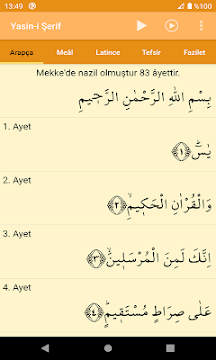 13:49
%100
Yasin-i Şerif
Arapça Meâl Latince Tefsir Fazilet
Mekke'de nazil olmuştur 83 âyettir.
بِسْمِ اللهِ الرَّحْمٰنِ الرَّحٖيمِ
1. Ayet
يٰسٓۜ ﴿١﴾
2. Ayet
وَالْقُرْاٰنِ الْحَكٖيمِۙ ﴿٢﴾
3. Ayet
اِنَّكَ لَمِنَ الْمُرْسَلٖينَۙ ﴿٣﴾
4. Ayet
عَلٰى صِرَاطٍ مُسْتَقٖيمٍۜ ﴿٤﴾